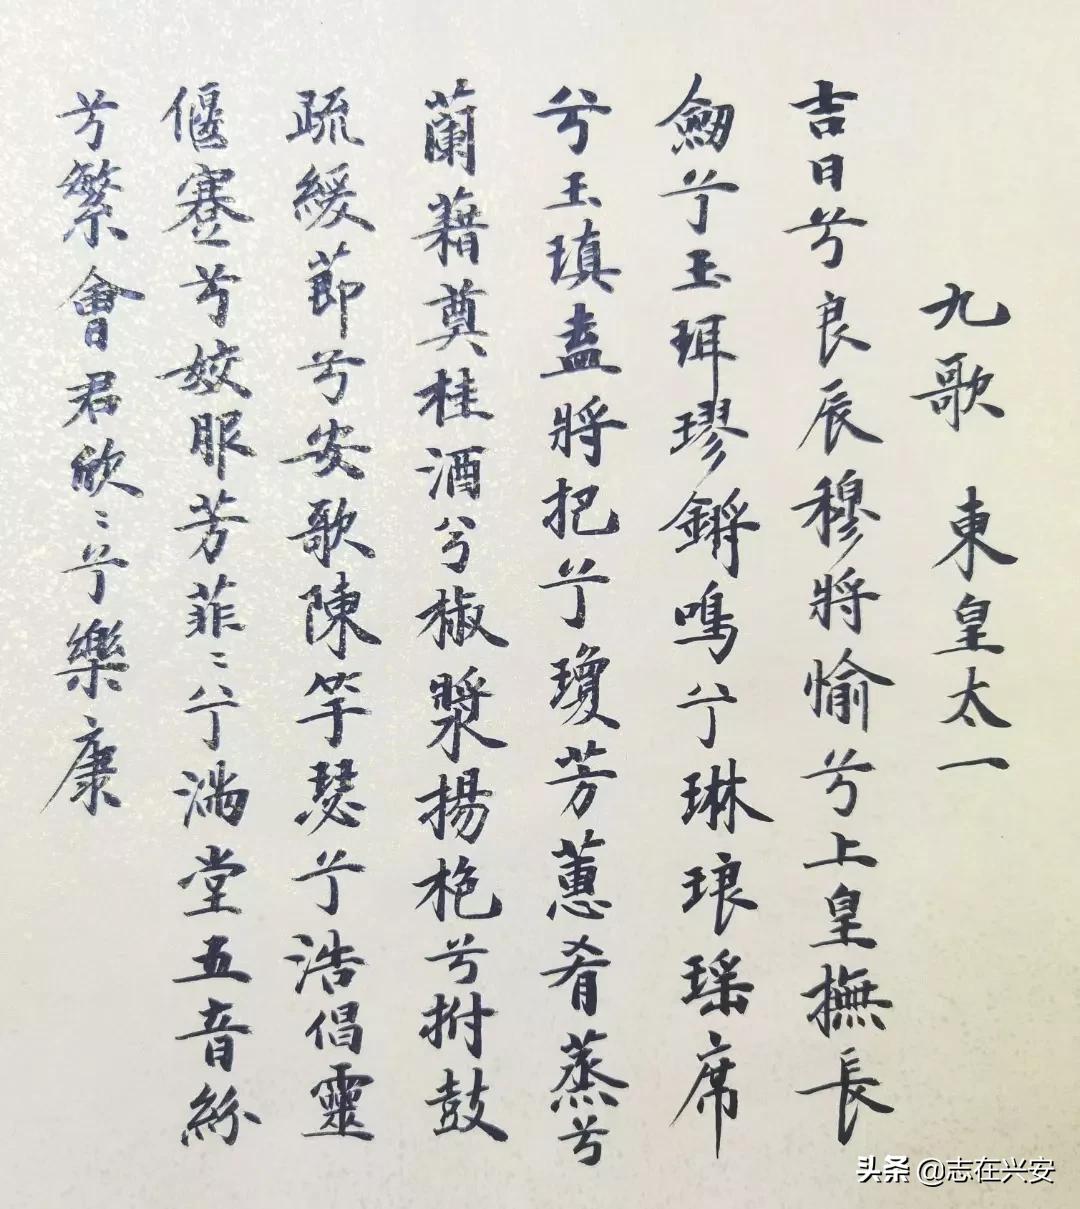 九歌 東皇太一
吉日兮良辰穆將愉兮上皇撫長
劒兮玉珥璆鏘鳴兮琳琅瑶席
兮玉瑱盍將把兮瓊芳蕙肴蒸兮
蘭藉奠桂酒兮椒漿揚枹兮拊鼓
疏緩節兮安歌陳竽瑟兮浩倡靈
偃蹇兮姣服芳菲〻兮滿堂五音紛
兮繁會君欣〻兮樂康
头条 @志在兴安